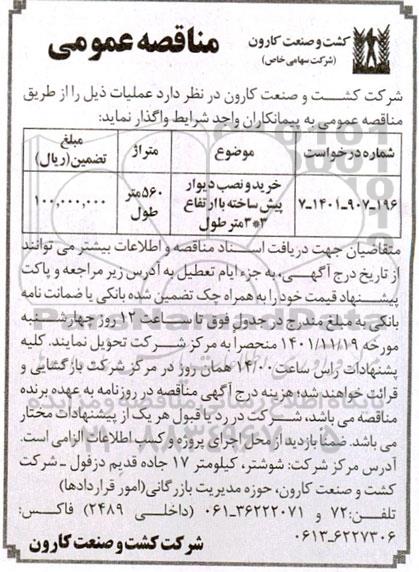 مناقصه عمومی
کشت و صنعت کارون
(شرکت سهامی خاص)
شرکت کشت و صنعت کارون در نظر دارد عملیات ذیل را از طریق
مناقصه عمومی به پیمانکاران واجد شرایط واگذار نماید:
شماره درخواست | موضوع | متراژ | مبلغ تضمین(ریال)
۷-۱۴۰۱-۹۰۷-۱۹۶ | خرید و نصب دیوار پیش ساخته با ارتفاع ۲*۳ متر طول | ۵۶۰ متر طول | ۱۰۰,۰۰۰,۰۰۰
متقاضیان جهت دریافت اسناد مناقصه و اطلاعات بیشتر می توانند
از تاریخ درج آگهی، به جزء ایام تعطیل به آدرس زیر مراجعه و پاکت
پیشنهاد قیمت خود را به همراه چک تضمین شده بانکی یا ضمانت نامه
بانکی به مبلغ مندرج در جدول فوق تا ساعت ۱۲ روز چهارشنبه
مورخه ۱۴۰۱/۱۱/۱۹ منحصرا به مرکز شرکت تحویل نمایند. کلیه
پشنهادات راس ساعت ۱۴/۰۰ همان روز در مرکز شرکت بازگشایی و
قرائت خواهند شد؛ هزینه درج آگهی مناقصه در روزنامه به عهده برنده
مناقصه می باشد، شرکت در رد یا قبول هر یک از پیشنهادات مختار
می باشد. ضمنا بازدید از محل اجرای پروژه و کسب اطلاعات الزامی است.
آدرس مرکز شرکت: شوشتر، کیلومتر ۱۷ جاده قدیم دزفول ـ شرکت
کشت و صنعت کارون، حوزه مدیریت بازرگانی(امور قراردادها)
تلفن: ۷۲ و ۳۶۲۲۲۰۷۱-۰۶۱ (داخلی ۲۴۸۹) فاکس:
۰۶۱۳-۶۲۲۷۳۰۶
شرکت کشت و صنعت کارون